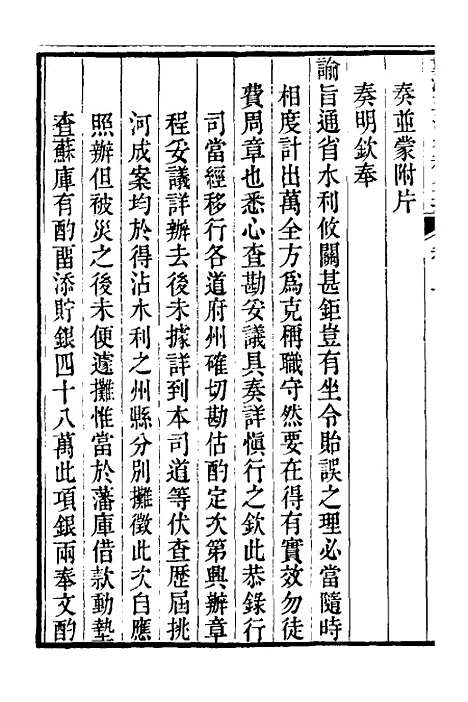 奏並蒙附片
奏明欽奉
諭旨通省水利攸關甚鉅豈有坐令貽誤之理必當隨時
相度計出萬全方爲克稱職守然要在得有實效勿徒
費周章也悉心查勘妥議具奏詳愼行之欽此恭錄行
司當經移行各道府州確切勘估酌定次第興辦章
程妥議詳辦去後未據詳到本司道等伏查歷屆挑
河成案均於得沾水利之州縣分別攤徵此次自應
照辦但被災之後未便遽攤惟當於藩庫借款動墊
查蘇庫有酌留添貯銀四十八萬此項銀兩奉文酌